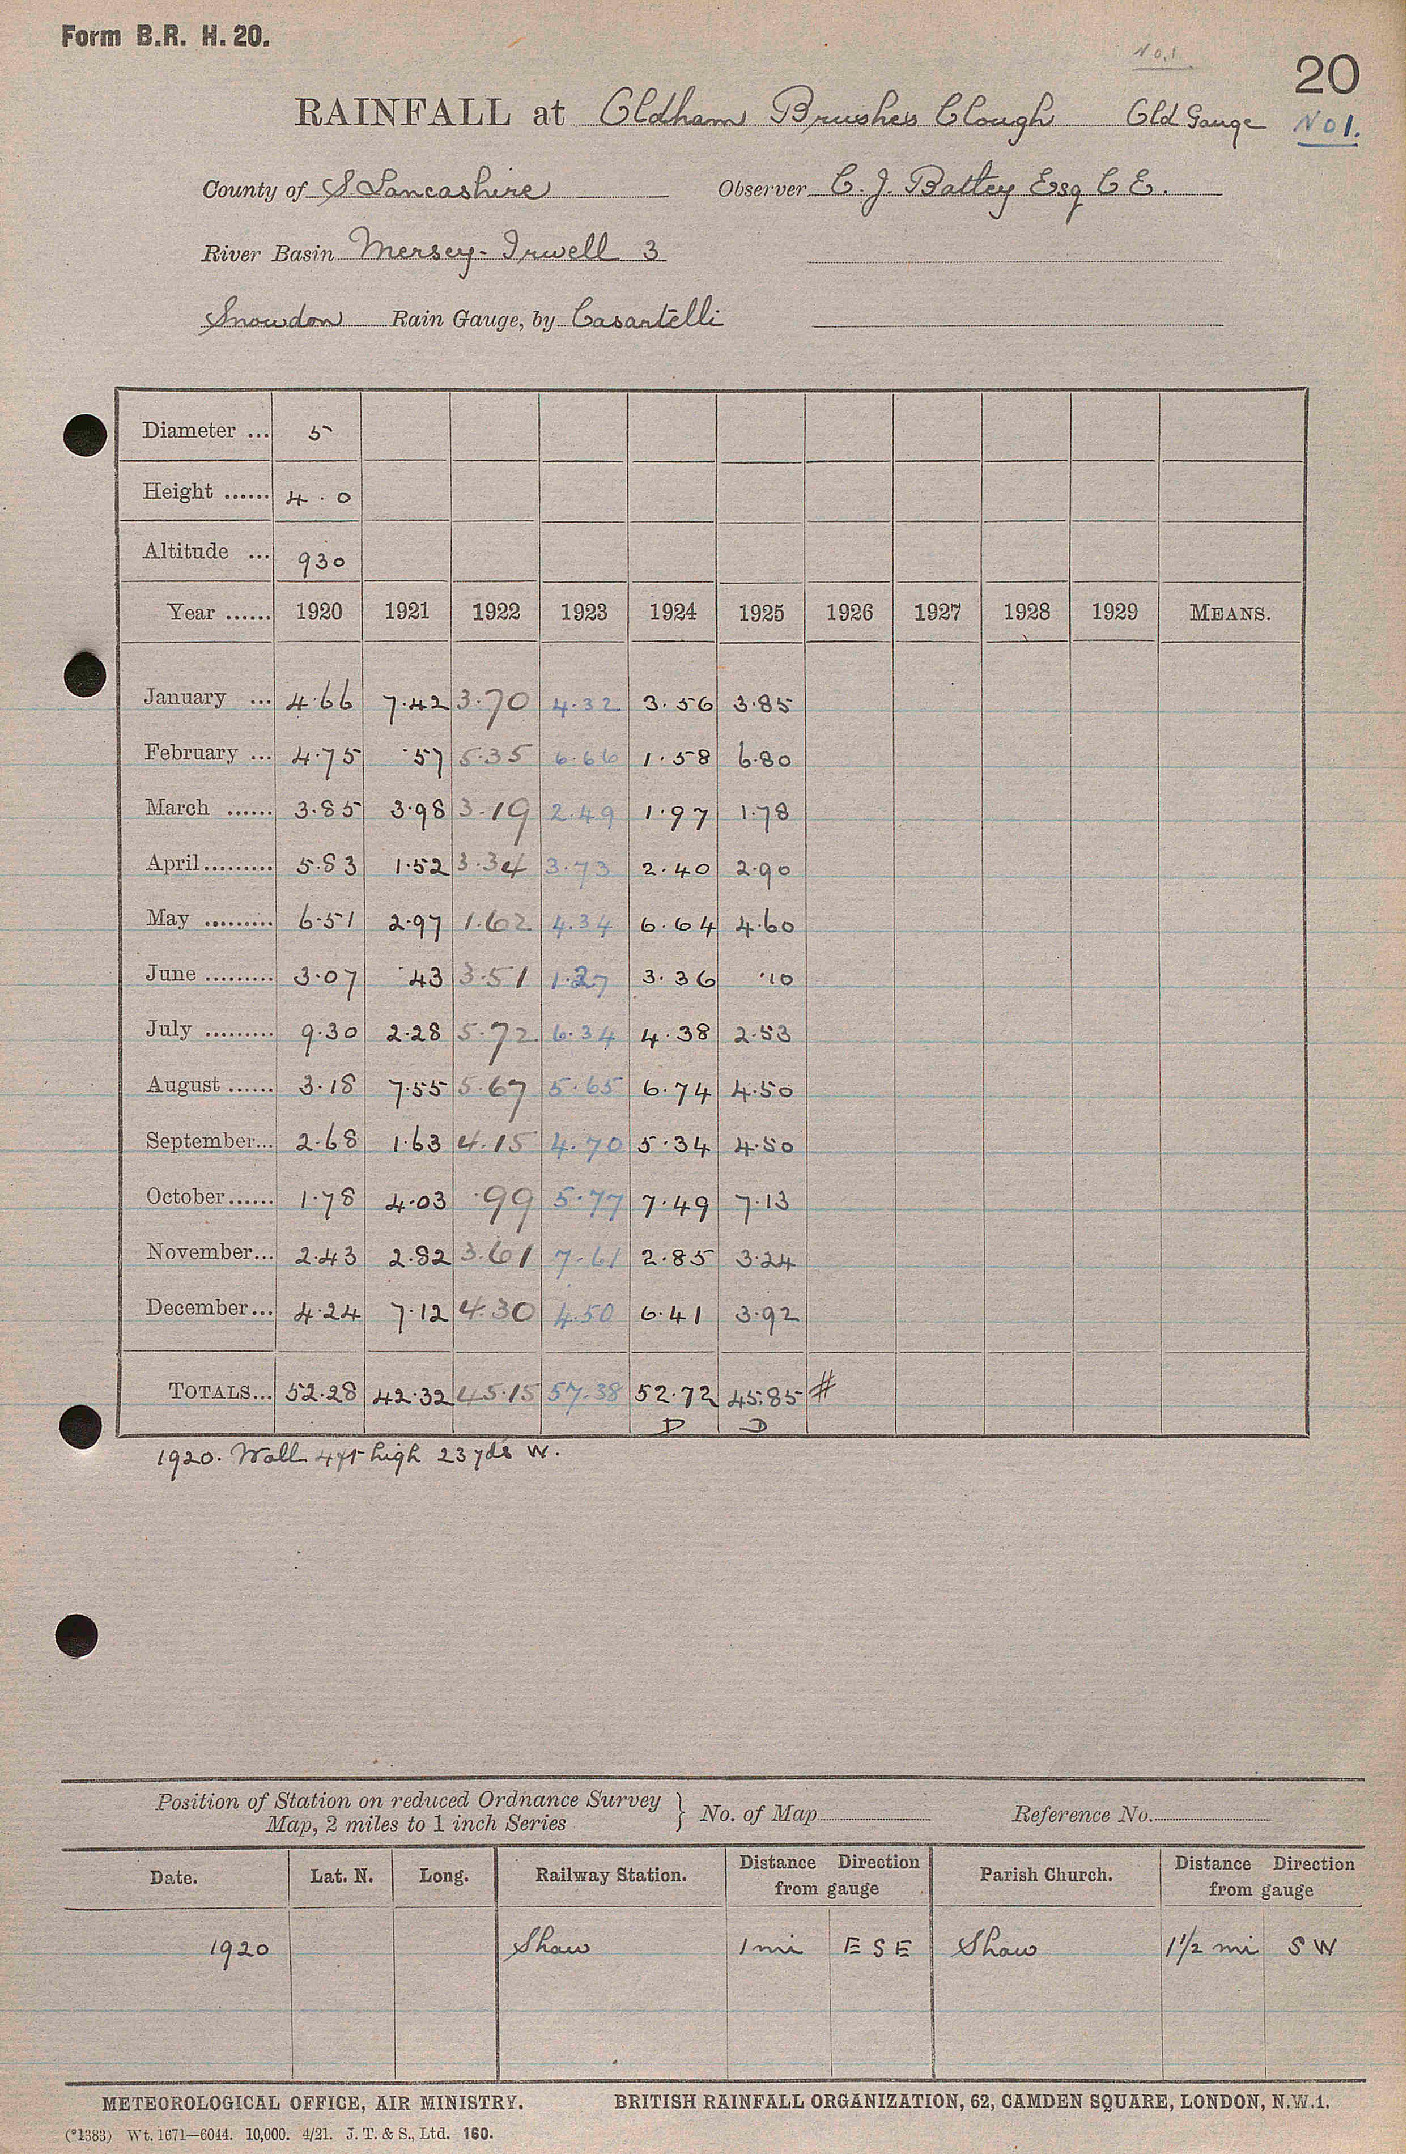 Form B.R. H. 20.
No. 1
20
RAINFALL at Oldham Brushes Clough Old Gauge No 1.
County of S. Lancashire Observer C. J. Battey Esq C E.
River Basin Mersey - Irwell 3
Snowdon Rain Gauge, by Casartelli
Diameter ... 5
Height ...... 4 . 0
Altitude ... 930
Year ...... 1920 1921 1922 1923 1924 1925 1926 1927 1928 1929 MEANS.
January ... 4.66 7.42 3.70 4.32 3.56 3.85
February ... 4.75 .57 5.35 6.66 1.58 6.80
March ...... 3.85 3.98 3.19 2.49 1.97 1.78
April ......... 5.83 1.52 3.34 3.73 2.40 2.90
May ......... 6.51 2.97 1.62 4.34 6.64 4.60
June ......... 3.07 .43 3.51 1.27 3.36 .10
July ......... 9.30 2.28 5.72 6.34 4.38 2.53
August ...... 3.18 7.55 5.67 5.65 6.74 4.50
September... 2.68 1.63 4.15 4.70 5.34 4.50
October ...... 1.78 4.03 .99 5.77 7.49 7.13
November... 2.43 2.82 3.61 7.61 2.85 3.24
December... 4.24 7.12 4.30 4.50 6.41 3.92
TOTALS... 52.28 42.32 45.15 57.38 52.72 45.85 #
D D
1920. Wall 4ft high 23 yds W.
Position of Station on reduced Ordnance Survey
Map, 2 miles to 1 inch Series } No. of Map Reference No.
Date. Lat. N. Long. Railway Station. Distance Direction from gauge Parish Church. Distance Direction from gauge
1920 Shaw 1 mi E S E Shaw 1 1/2 mi S W
METEOROLOGICAL OFFICE, AIR MINISTRY. BRITISH RAINFALL ORGANIZATION, 62, CAMDEN SQUARE, LONDON, N.W.1.
(*1383) Wt. 1671—6044. 10,000. 4/21. J. T. & S., Ltd. 160.